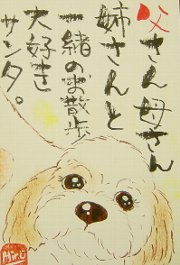 父さん母さん
姉さんと
一緒のお散歩
大好き
サンタ。
Hiro